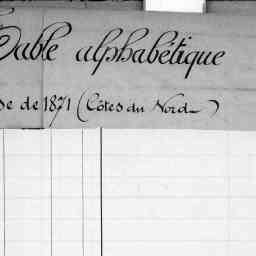 Table alphabétique
de 1871 (Côtes du Nord)